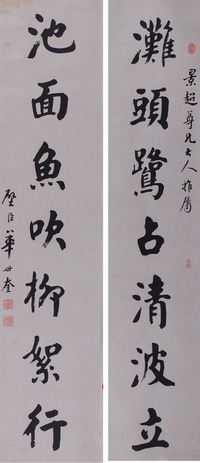 灘頭鷺占清波立
景超尊兄大人雅屬
池面魚吹柳絮行
璧臣華世奎